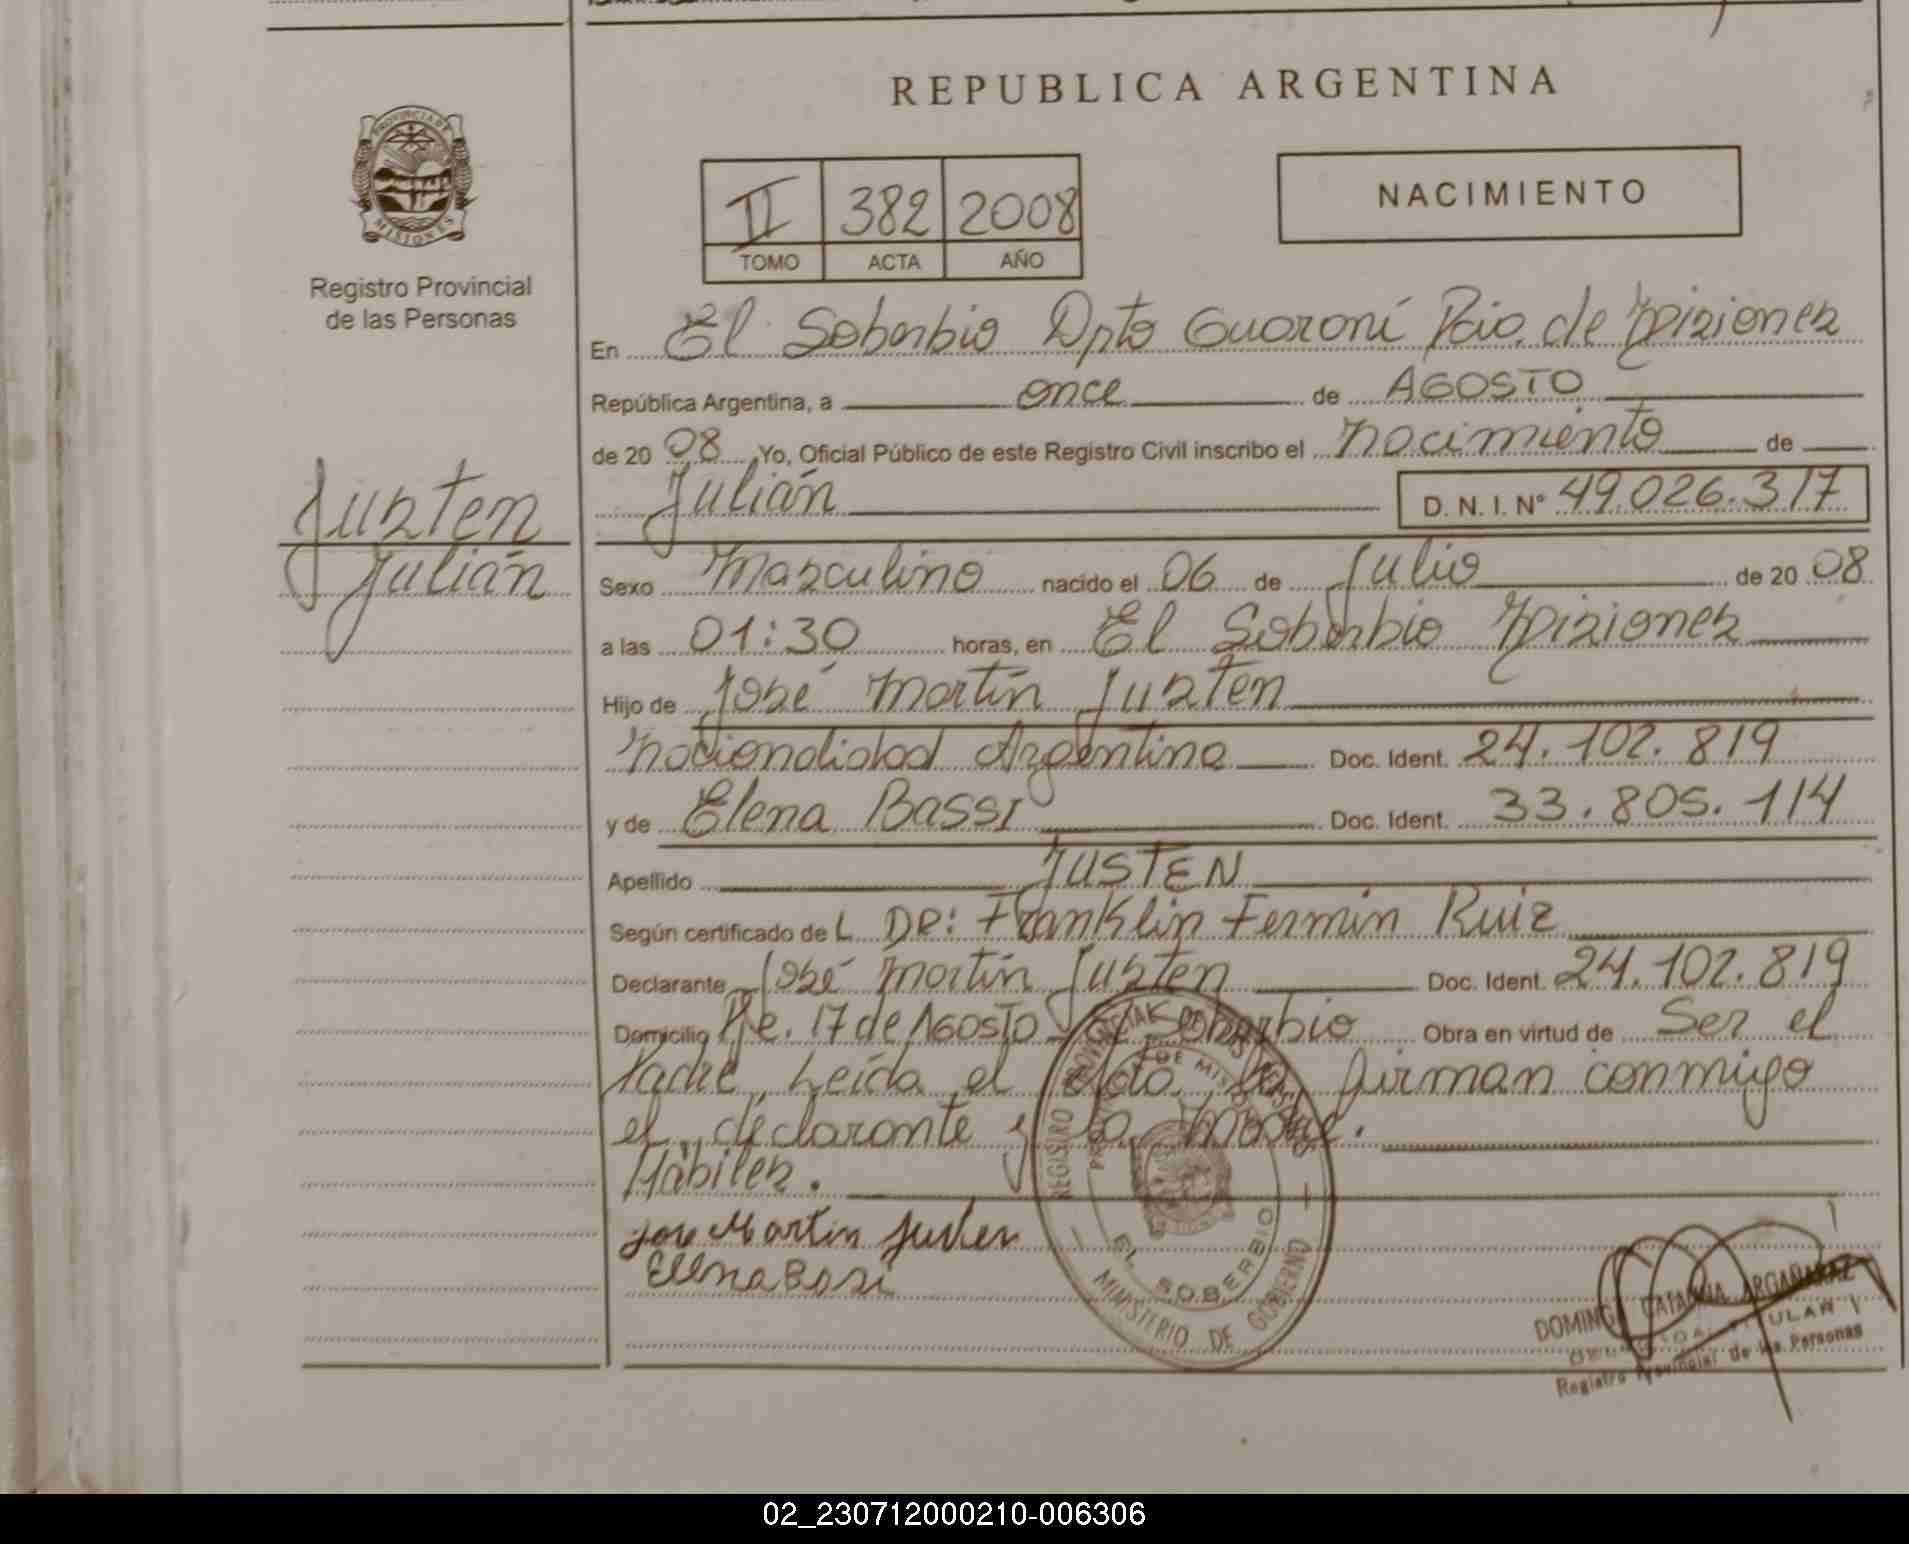 REPUBLICA ARGENTINA
PROVINCIA DE
MISIONES
Registro Provincial
de las Personas
II 382 2008
TOMO ACTA AÑO
NACIMIENTO
En El Soberbio Dpto Guaraní Pcia. de Misiones
República Argentina, a once de AGOSTO
de 20 08 Yo, Oficial Público de este Registro Civil inscribo el nacimiento de
Julián D. N. I. Nº 49.026.317
Justen
Julián
Sexo Masculino nacido el 06 de Julio de 20 08
a las 01:30 horas, en El Soberbio Misiones
Hijo de José Martín Justen
nacionalidad Argentina Doc. Ident. 24.102.819
y de Elena Bassi Doc. Ident. 33.805.114
Apellido JUSTEN
Según certificado de L DR: Franklin Fermin Ruiz
Declarante José Martín Justen Doc. Ident. 24.102.819
Domicilio Pje. 17 de AGOSTO El Soberbio Obra en virtud de Ser el
Padre Leída el Acta, la firman conmigo
el declarante y la madre.
Hábiles.
Jose Martin Justen
Elena Basi
REGISTRO PROVINCIAL DE LAS PERSONAS
PROVINCIA DE MISIONES
EL SOBERBIO
MINISTERIO DE GOBIERNO
DOMINGA CATALINA ARGAÑARAZ
TITULAR
Registro Provincial de las Personas
02_230712000210-006306